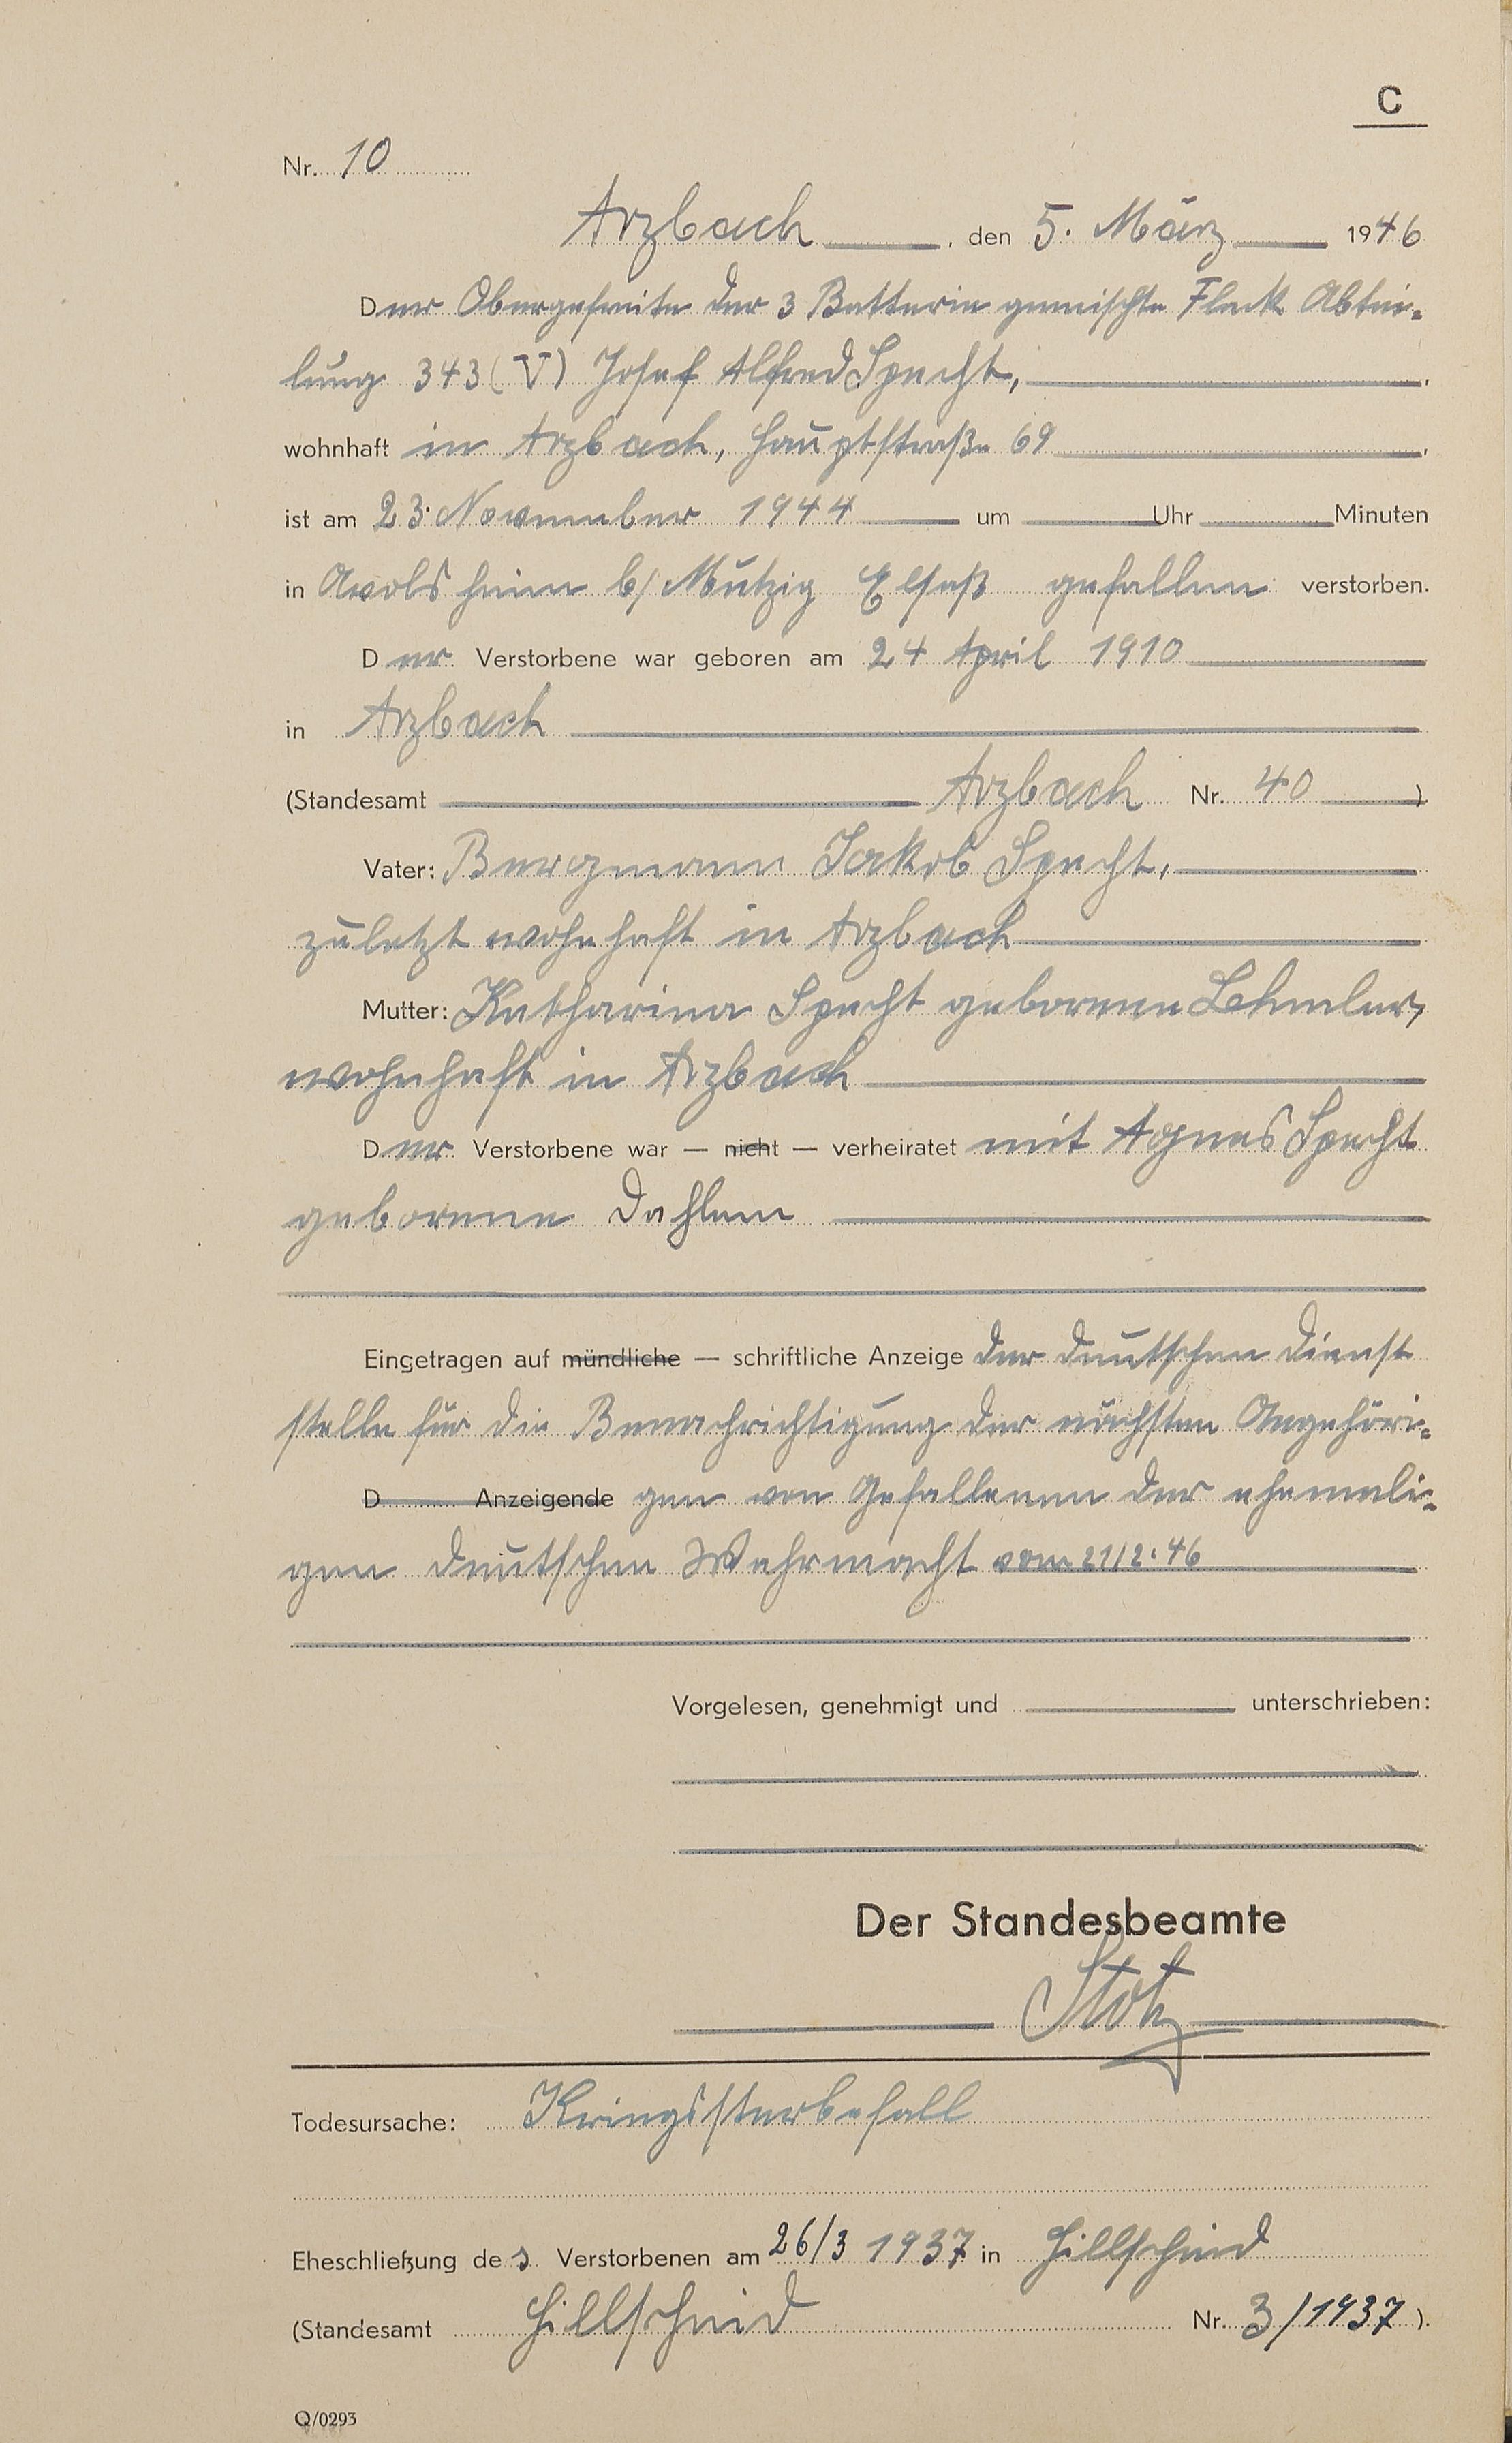 C
Nr. 10
Arzbach, den 5. März 1946
Der Obergefreite der 3 Batterie gemischte Flack Abtei-
lung 343 (V) Josef Alfred Specht,
wohnhaft in Arzbach, Hauptstraße 69
ist am 23. November 1944 um Uhr Minuten
in Avolsheim b/ Mutzig Elsaß gefallen verstorben.
Der Verstorbene war geboren am 24 April 1910
in Arzbach
(Standesamt Arzbach Nr. 40 )
Vater: Bergmann Jakob Specht,
zuletzt wohnhaft in Arzbach
Mutter: Katharina Specht geborene
wohnhaft in Arzbach
Der Verstorbene war — nicht — verheiratet mit Agnes Specht
geborene Dahlem
Eingetragen auf mündliche — schriftliche Anzeige der deutschen Dienst
stelle für die Benachrichtigung der nächsten Angehöri-
D Anzeigende gen von Gefallenen der ehemali-
gen deutschen Wehrmacht vom 21/2.46
Vorgelesen, genehmigt und unterschrieben:
Der Standesbeamte
Stotz
Todesursache: Kriegssterbefall
Eheschließung des Verstorbenen am 26/3 1937 in Hillscheid
(Standesamt Hillscheid Nr. 3/1937 ).
Q/0293